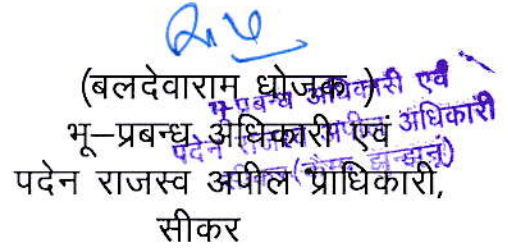 (बलदेवाराम धोजक )
भू–प्रबन्ध अधिकारी एवं
पदेन राजस्व अपील प्राधिकारी,
सीकर
भू-प्रबन्ध अधिकारी एवं
पदेन राजस्व अपील अधिकारी
सीकर (कैम्प झुन्झुनूं)